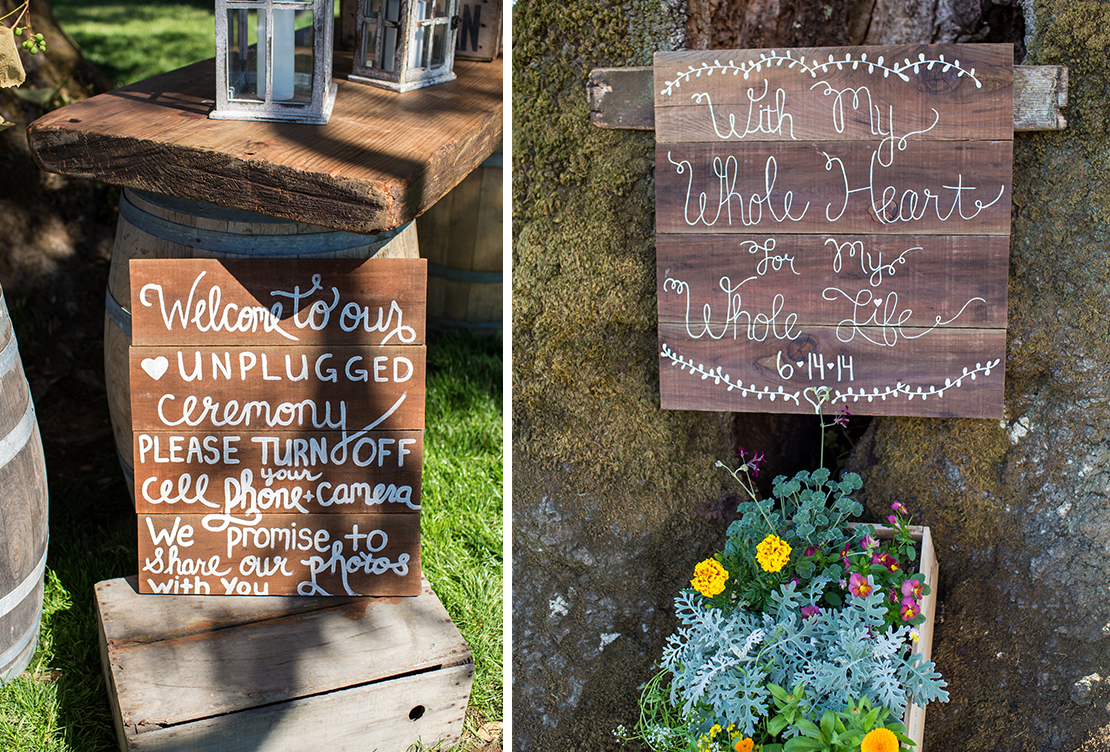 Welcome to our
UNPLUGGED
ceremony
PLEASE TURN OFF
your
cell phone + camera
We promise to
share our photos
with you
With My
Whole Heart
For My
Whole Life
6♥14♥14